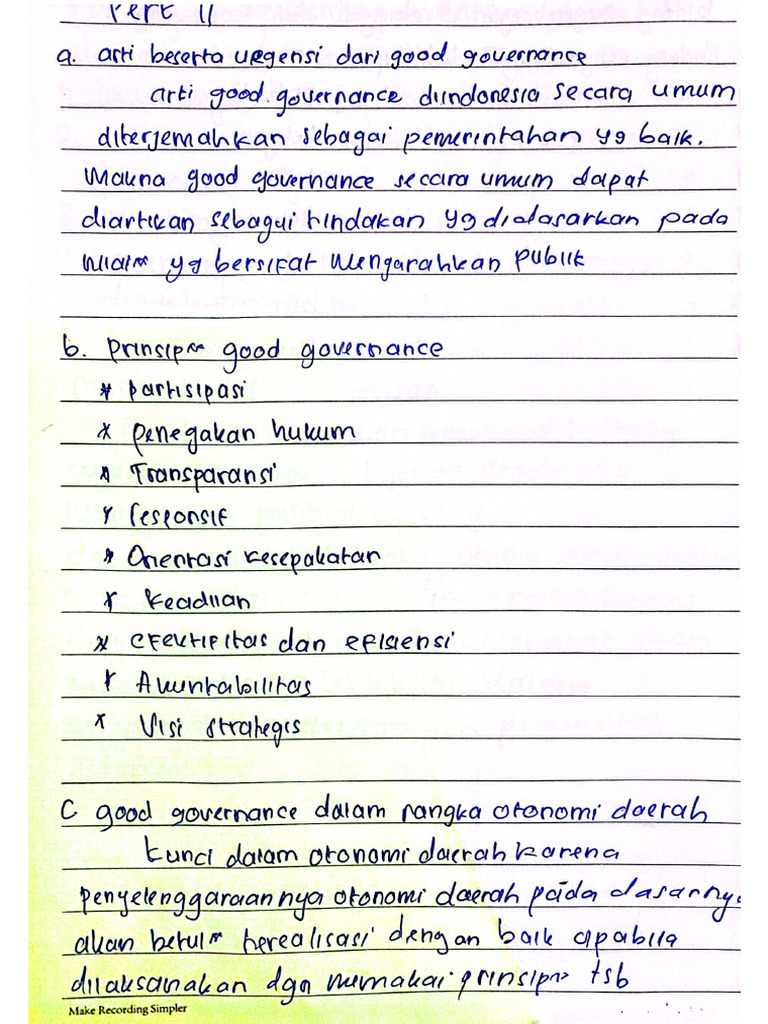 Pert 11
a. arti beserta urgensi dari good governance
arti good governance diindonesia secara umum
diterjemahkan sebagai pemerintahan yg baik.
Makna good governance secara umum dapat
diartikan sebagai tindakan yg didasarkan pada
nilai" yg bersifat mengarahkan publik
b. Prinsip" good governance
* partisipasi
* penegakan hukum
* Transparansi
* Responsif
* Orientasi kesepakatan
* Keadilan
* efektifitas dan efisiensi
* Akuntabilitas
* Visi strategis
C good governance dalam rangka otonomi daerah
kunci dalam otonomi daerah karena
penyelenggaraannya otonomi daerah pada dasarnya
akan betul" terealisasi dengan baik apabila
dilaksanakan dgn memakai prinsip" tsb
Make Recording Simpler